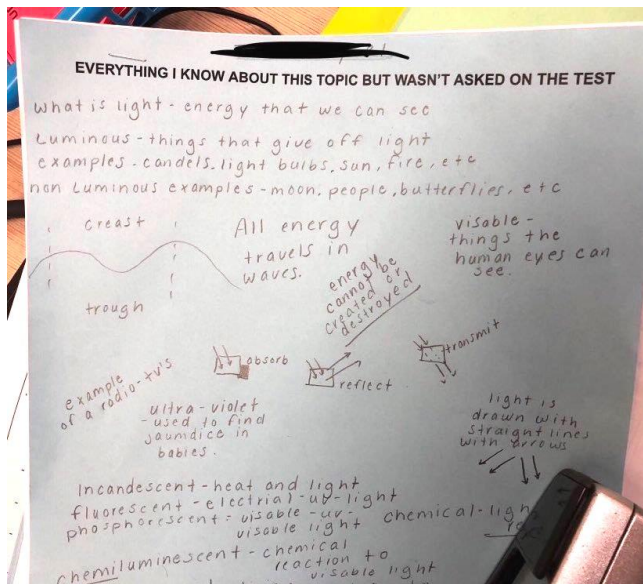 EVERYTHING I KNOW ABOUT THIS TOPIC BUT WASN'T ASKED ON THE TEST
what is light - energy that we can see
Luminous - things that give off light
examples - candels, light bulbs, sun, fire, etc
non Luminous examples - moon, people, butterflies, etc
creast
trough
All energy
travels in
waves.
energy
cannot be
created or
destroyed
visable -
things the
human eyes can
see.
absorb
reflect
transmit
example
of a radio - tv's
ultra - violet
- used to find
jaumdice in
babies.
light is
drawn with
straight lines
with arrows
Incandescent - heat and light
fluorescent - electrial - uv - light
phosphorescent = visable - uv -
visable light
chemical - light
chemiluminescent - chemical
reaction to
visable light